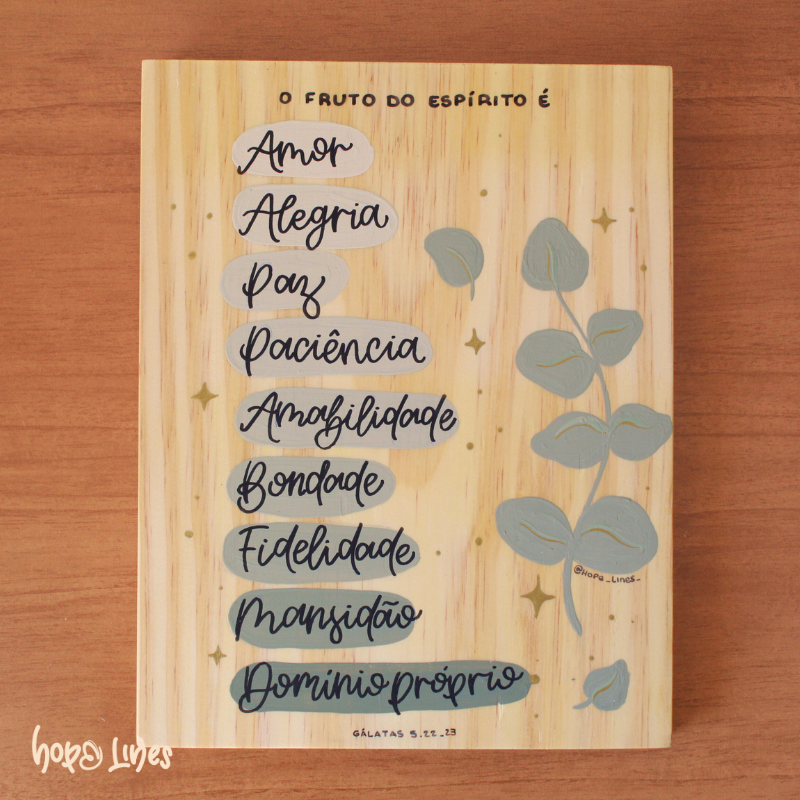 O FRUTO DO ESPÍRITO É
Amor
Alegria
Paz
Paciência
Amabilidade
Bondade
Fidelidade
Mansidão
Domínio próprio
@HOPA_LINES_
GÁLATAS 5.22_23
HOPA LINES